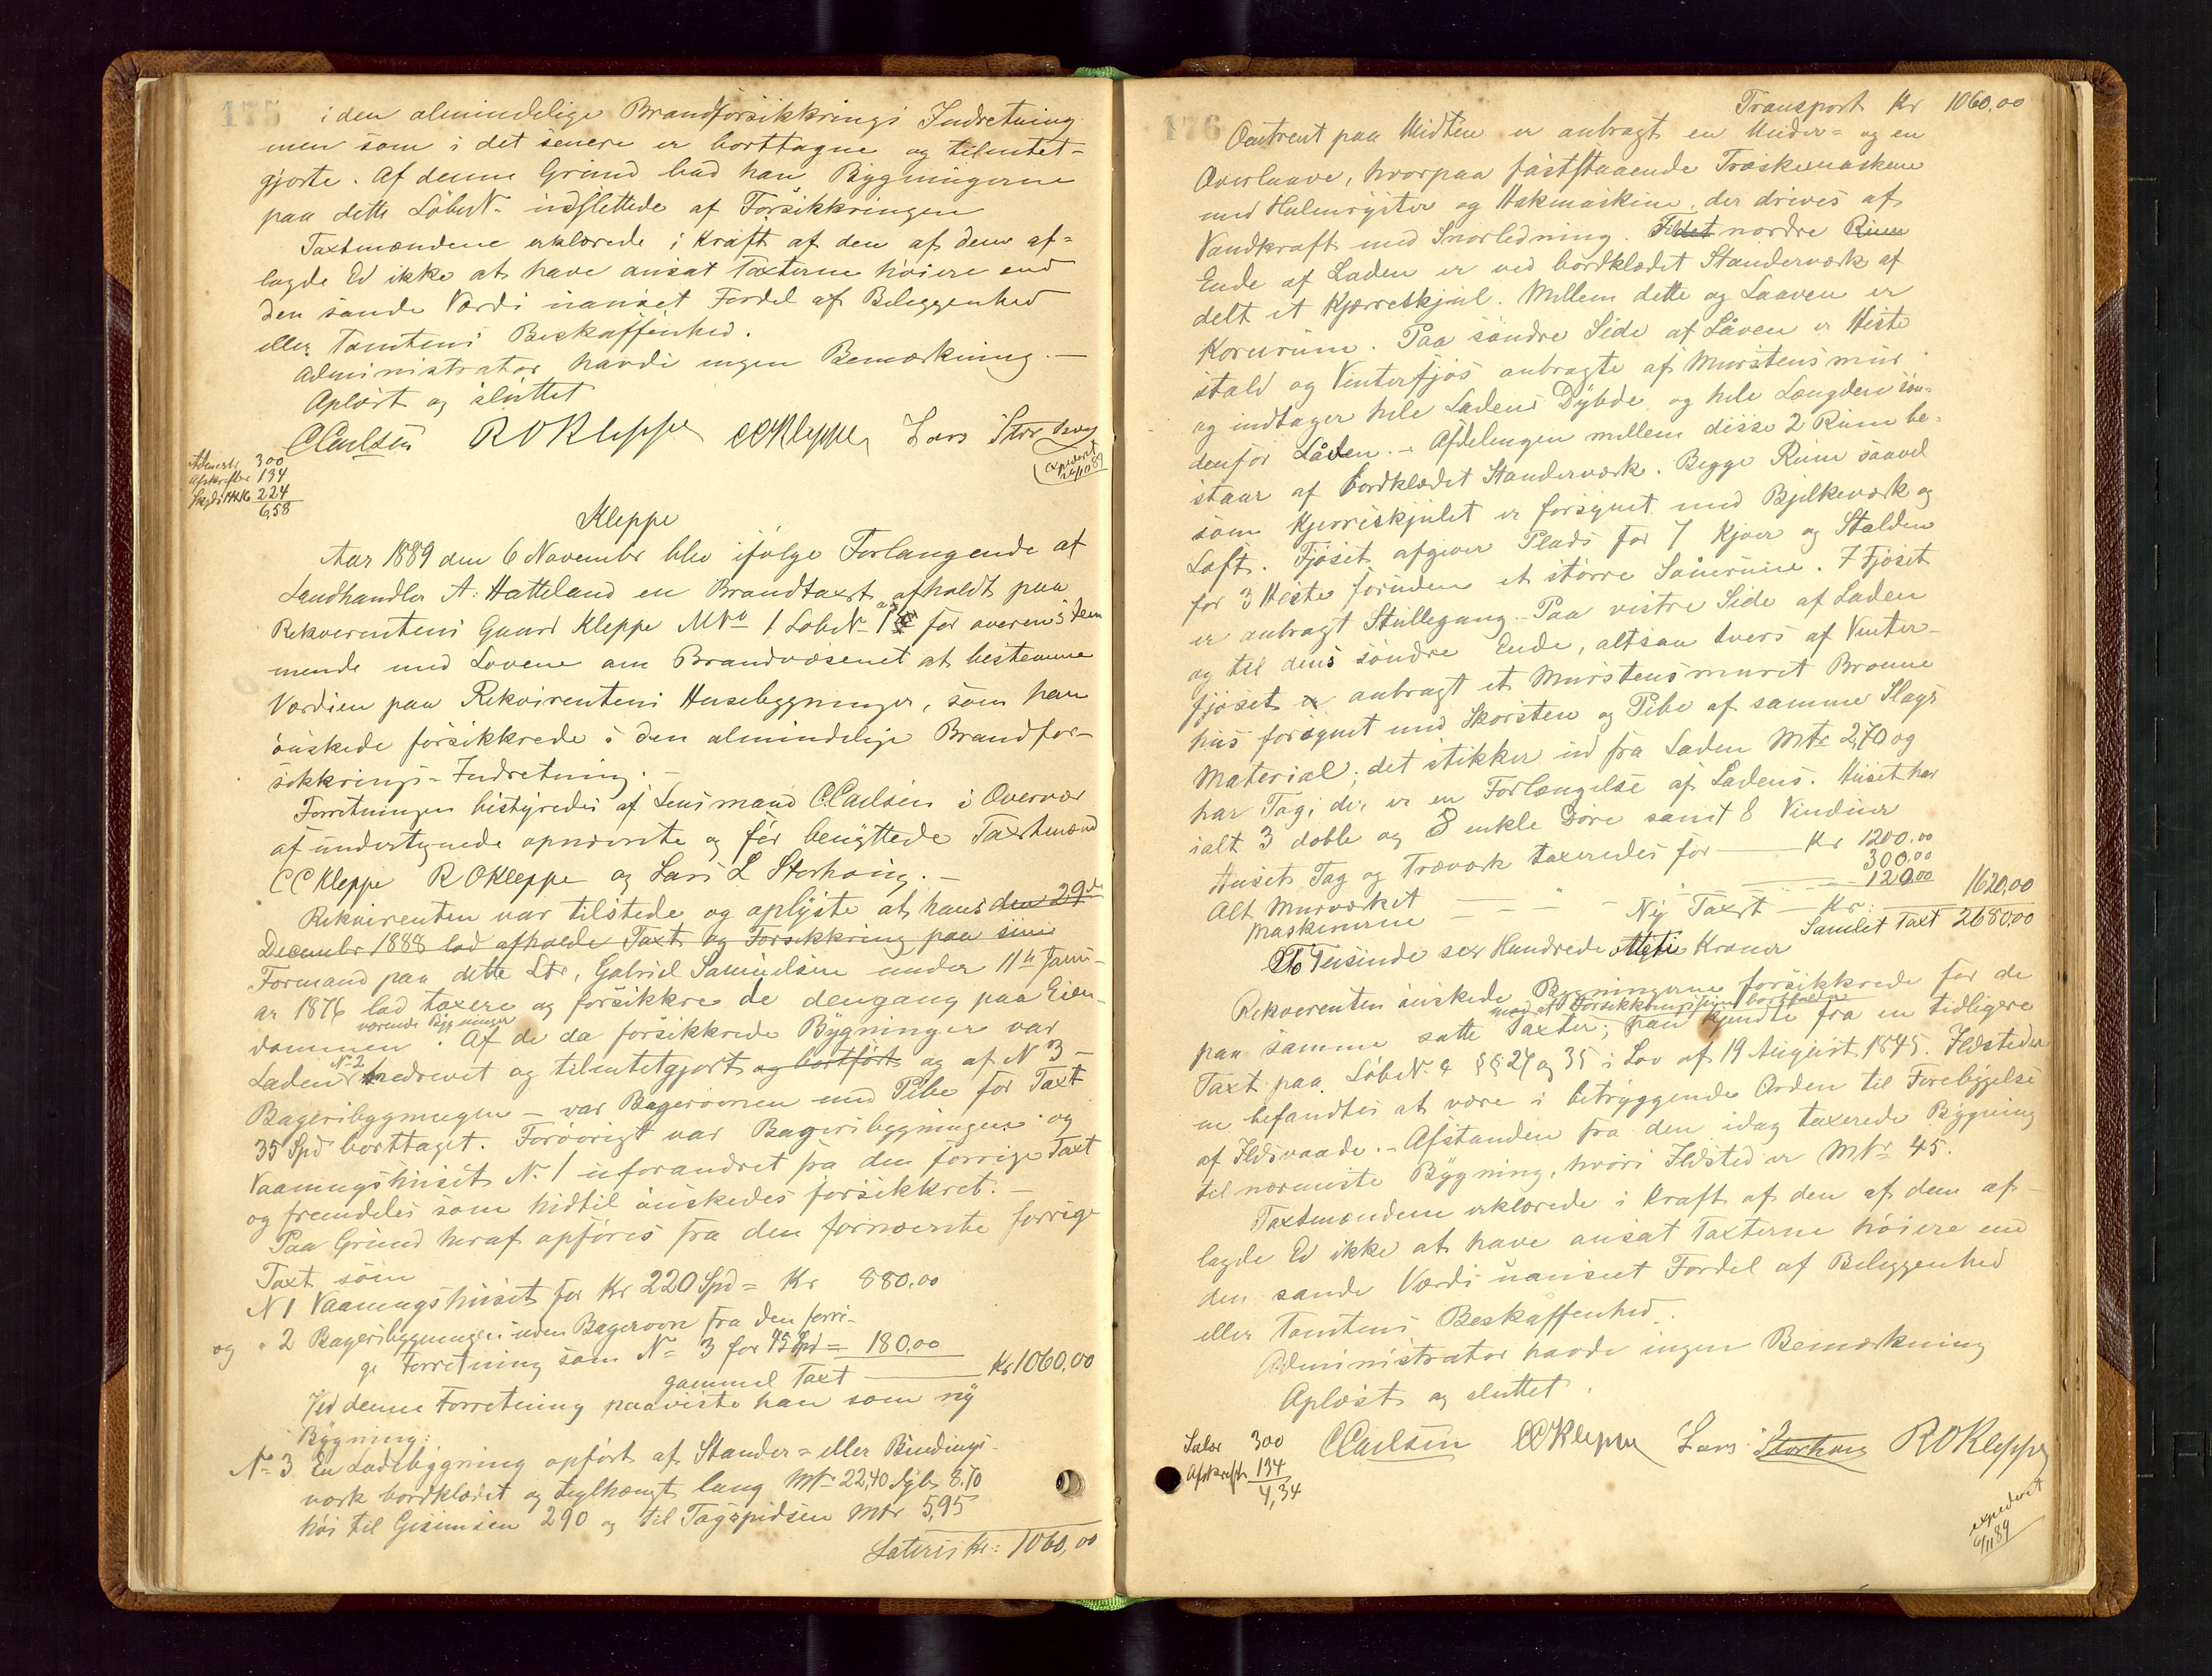 175
i den almindelige Brandforsikkrings Indretning
men som i det senere er borttagne og tilintet-
gjorte. Af denne Grund bad han Bygningerne
paa dette LøbeN. udslettede af Forsikkringen
Taxtmændene erklærede i Kraft af den af dem af-
lagde Ed ikke at have ansat Taxterne høiere end
den sande Værdi uanset Fordel af Beliggenhed
eller Tomtens Beskaffenhed.
Administrator havde ingen Bemærkning. —
Oplæst og sluttet
CCarlsen ROKleppe CCKleppe Lars Storhoug
expederet
Afskrift 134
300
224
6,58
Kleppe
Aar 1889 den 6 Novembr blev ifølge Forlangende af
Landhandler A. Hatteland en Brandtaxt afholdt paa
Rekvirentens Gaard Kleppe MNo 1 LøbeN. for overensstem
mende med Lovene om Brandvæsenet at bestemme
Værdien paa Rekvirentens Husebygninger, som han
ønskede forsikkrede i den almindelige Brandfor-
sikkrings-Indretning. —
Forretningen bestyredes af Lensmand CCarlsen i Overvær
af undertegnede opnævnte og før benyttede Taxtmænd
CC Kleppe R OKleppe og Lars L Storhoug. —
Rekvirenten var tilstede og oplyste at hans den 29de
Decembr 1888 lod afholde Taxt og Forsikkring paa sine
Formand paa dette Lbr, Gabriel Samuelsen under 11te Janu-
ar 1876 lod taxere og forsikkre de dengang paa Eien-
værende Bygninger
dommen. Af de da forsikkrede Bygninger var
Laden N=2 nedrevet og tilintetgjort og bortført og af N 3 —
Bageribygningen — var Bagerovnen med Pibe for Taxt
35 Spd borttaget. Forøvrigt var Bageribygningen og
Vaaningshuset N. 1 uforandret fra den forrige Taxt
og fremdeles som hidtil ønskedes forsikkret. —
Paa Grund heraf opføres fra den fornævnte forrige
Taxt som
N 1 Vaaningshuset for Kr 220 Spd = Kr 880,00
og " 2 Bageribygningen uden Bagerovn fra den forri-
ge Forretning som N= 3 for 45 Spd = 180,00
gammel Taxt — Kr 1060,00
Ved denne Forretning paaviste han som ny
Bygning:
N= 3 En Ladebygning opført af Stander= eller Bindings-
værk bordklædet og teglhængt lang Mtr 22,40 dyb 8.70
høi til Gesimsen 290 og til Tagspidsen Mtr 5,95
Lateris Kr: 1060,00
176
Transport Kr 1060,00
Omtrent paa Midten er anbragt en Under= og en
Overlaave, hvorpaa faststaaende Træskemaskine
med Halmryster og Hakmaskine, der drives af
Vandkraft med Snorledning. nordre Rum
Ende af Laden er ved bordklædet Standerværk af
delt et Kjærreskjul. Mellem dette og Laaven er
Kornrum. Paa søndre Side af Låven er Heste
stald og Vinterfjøs anbragte af Murstensmur
og indtager hele Ladens Dybde og hele Længden søn-
denfor Låden. — Afdelingen mellem disse 2 Rum be-
staar af bordklædet Standerværk. Begge Rum saavel
som Kjerreskjulet er forsynet med Bjelkeværk og
Loft. Fjøset afgiver Plads for 7 Kjøer og Stalden
for 3 Heste foruden et større Saurum. I Fjøset
er anbragt Stillegang. Paa vestre Side af Laden
og til dens søndre Ende, altsaa tvers af Vinter-
fjøset er anbragt et Murstensmuret Brønne
hus forsynet med Skorsten og Pibe af samme Slags
Material; det stikker ud fra Laden Mtr 2,70 og
har Tag, der er en Forlængelse af Ladens. Huset har
ialt 3 doble og 8 enkle Døre samt 8 Vinduer
Huset, Tag og Træværk taxeredes for — Kr 1200.00
Alt Murværket — — " — — 300,00
Maskinerne — — — 120,00 1620,00
Ny Taxt — Kr:
Samlet Taxt 2680,00
To Tusinde sex Hundrede Otteti Kroner
Rekverenten ønskede Bygningerne forsikkrede for de
paa samme satte Taxter; han kjendte fra en tidligere
Taxt paa LøbeN. & §§ 27 og 35 i Lov af 19 August 1845. Ildstedere
ne befandtes at være i betryggende Orden til Forebyggelse
af Ildsvaade. — Afstanden fra den idag taxerede Bygning
til nærmeste Bygning, hvori Ildsted er Mtr 45.
Taxtmændene erklærede i Kraft af den af dem af-
lagde Ed ikke at have ansat Taxterne høiere end
den sande Værdi uanseet Fordel af Beliggenhed
eller Tomtens Beskaffenhed.
Administrator havde ingen Bemærkning
Oplæst og sluttet.
Salær 300
Afskrift 134
4,34
CCarlsen CCKleppe Lars Storhoug ROKleppe
expederet
6/11 89